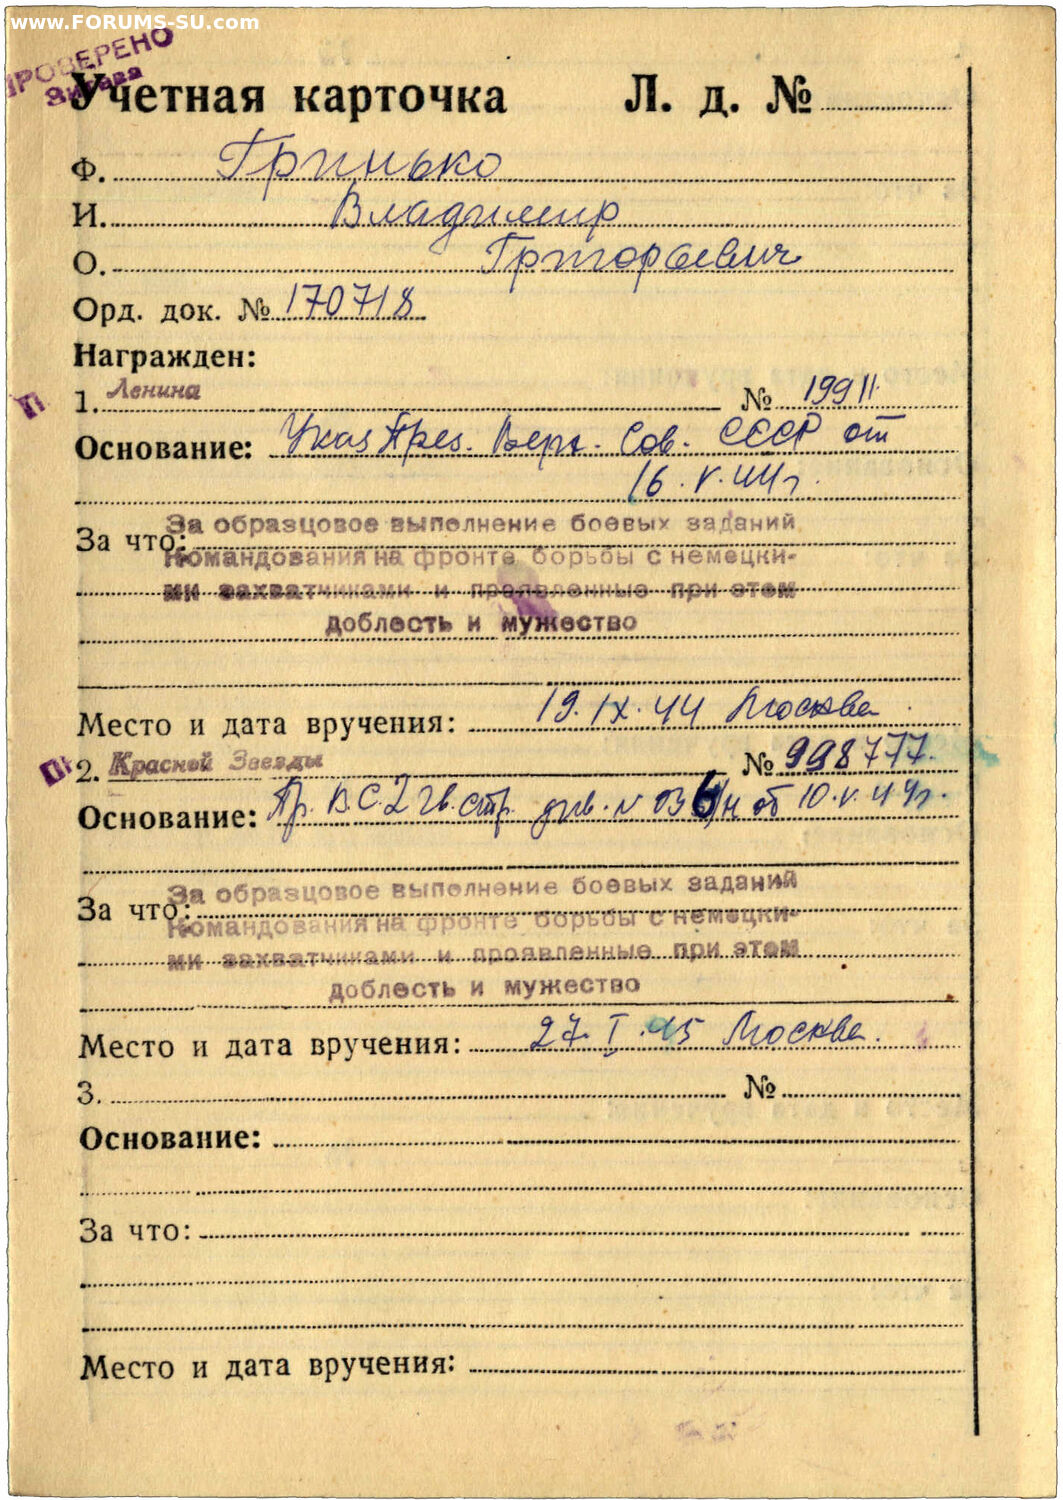 www.FORUMS-SU.com
ПРОВЕРЕНО
Учетная карточка Л. д. №
Ф. Гринько
И. Владимир
О. Григорьевич
Орд. док. № 170718
Награжден:
П
1. Ленина № 19911
Основание: Указ През. Верх. Сов. СССР от
16.V.44г.
За что: За образцовое выполнение боевых заданий
Командования на фронте борьбы с немецки-
ми захватчиками и проявленные при этом
доблесть и мужество
Место и дата вручения: 19.IX.44 Москва
2. Красной Звезды № 998777.
Основание: Пр. В.С. 2 гв. стр. див. № 036/н от 10.V.44г.
За что: За образцовое выполнение боевых заданий
Командования на фронте борьбы с немецки-
ми захватчиками и проявленные при этом
доблесть и мужество
Место и дата вручения: 27.I.45 Москва.
3. №
Основание:
За что:
Место и дата вручения: